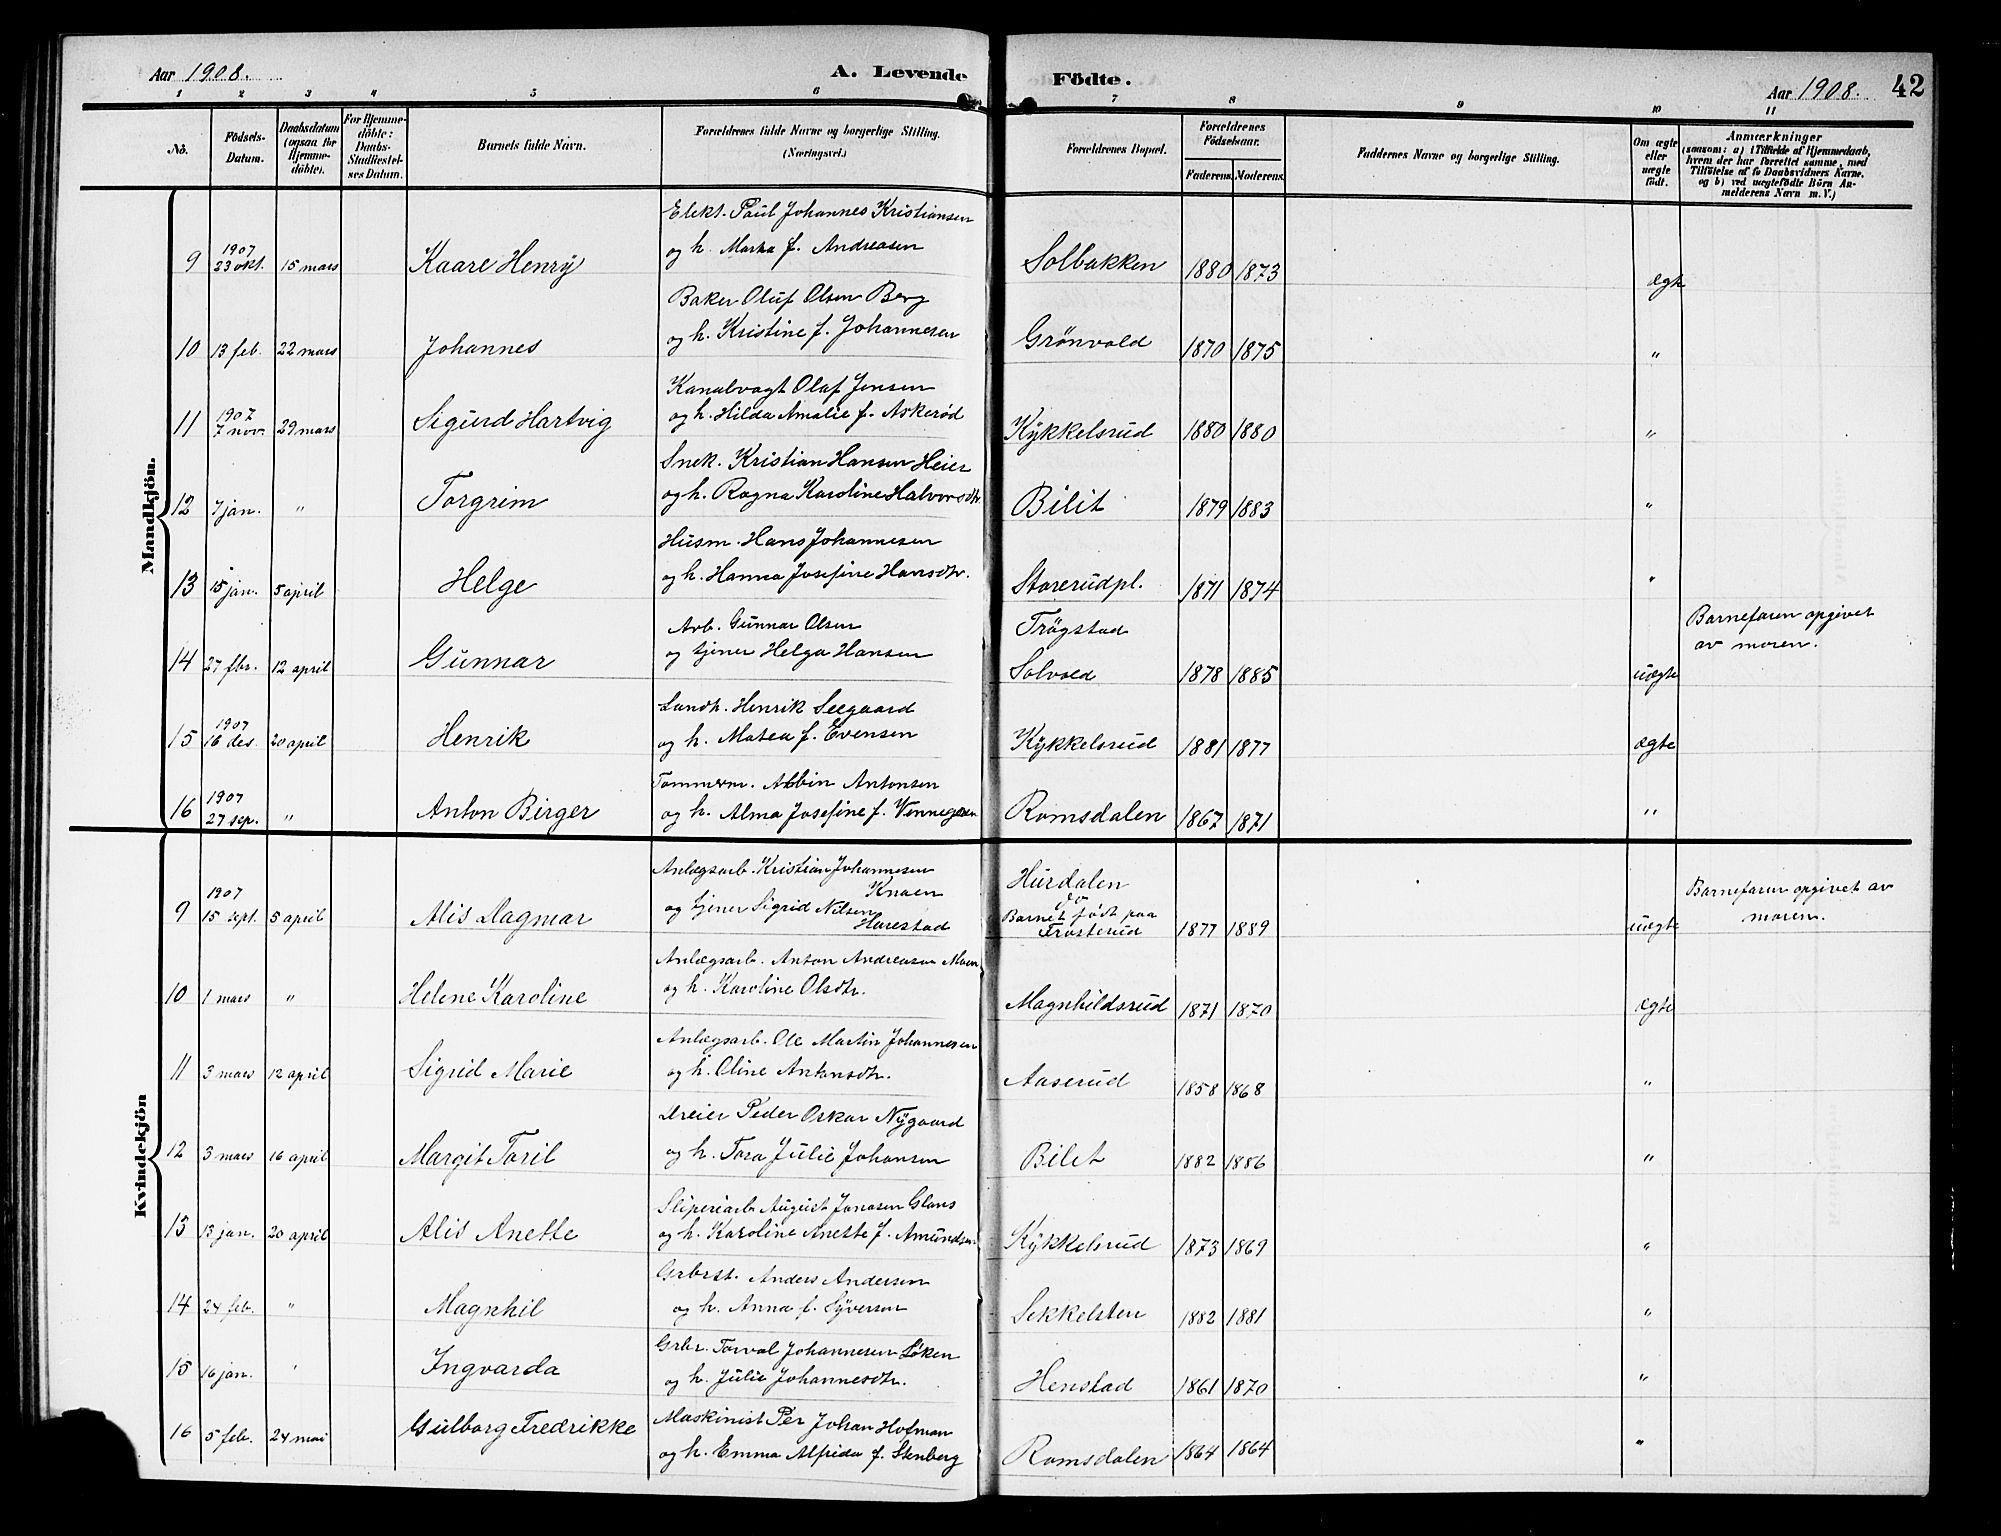 Aar 1908.
A. Levende Födte.
Aar 1908.
42
1 2 3 4 5 6 7 8 9 10 11
Nô.
Födsels-Datum.
Daabsdatum (ogsaa for Hjemme-döbte).
For Hjemme-döbte: Daabs-Stadfæstel-ses Datum.
Barnets fulde Navn.
Forældrenes fulde Navne og borgerlige Stilling.
(Næringsvei.)
Forældrenes Bopæl.
Forældrenes Födselsaar.
Faderens. Moderens.
Faddernes Navne og borgerlige Stilling.
Om ægte eller uægte födt.
Anmærkninger
(saasom: a) i Tilfælde af Hjemmedaab, hvem der har forrettet samme, med Tilföielse af to Daabsvidners Navne, og b) ved uægtefödte Börn An-melderens Navn m. V.)
Mandkjön.
Elekt. Paul Johannes Kristiansen
9 1907 23 okt. 15 mars Kaare Henry og h. Marta f. Andreasen Solbakken 1880 1873 ægte
Baker Oluf Olsen Berg
10 13 feb. 22 mars Johannes og h. Kristine f. Johannesen Grönvold 1870 1875 "
Kanalvagt Olaf Jensen
11 1907 7 nov. 29 mars Sigurd Hartvig og h. Hilda Amalie f. Askeröd Kykkelsrud 1880 1880 "
Snek. Kristian Hansen Heier
12 7 jan. " Torgrim og h. Ragna Karoline Halvorsdtr Bilit 1879 1883 "
Husm. Hans Johannesen
13 15 jan. 5 april Helge og h. Hanna Josefine Hansdtr. Storerudpl. 1871 1874 "
Arb. Gunnar Olsen Trögstad Barnefaren opgivet
14 27 fbr. 12 april Gunnar og tjener Helga Hansen Solvold 1878 1885 uægte av moren.
Landh. Henrik Seegaard
15 1907 16 des. 20 april Henrik og h. Matea f. Evensen Kykkelsrud 1881 1877 ægte
Tømmerm. Albin Antonsen
16 1907 27 sep. " Anton Birger og h. Alma Josefine f. Romsdalen 1867 1871 "
Kvindekjön
Anlægsarb. Kristian Johannesen Knaen Hurdalen Barnefaren opgivet av
9 1907 15 sept. 5 april Alis Dagmar og tjener Sigrid Nilsen Harestad do Barnet födt paa Frosterud 1877 1889 uægte moren.
Anlægsarb. Anton Andreasen Moen
10 1 mars " Helene Karoline og h. Karoline Olsdtr. Magnhildsrud 1871 1870 ægte
Anlægsarb. Ole Martin Johannesen
11 3 mars 12 april Sigrid Marie og h. Oline Antonsdtr. Aaserud 1858 1868 "
Dreier Peder Oskar Nygaard
12 3 mars 16 april Margit Toril og h. Tora Julie Johansen Bilet 1882 1886 "
Sliperiarb August Jonasen Glans
13 13 jan. 20 april Alis Anette og h. Karoline Anette f. Amundsen. Kykkelsrud 1873 1869 "
Grbrst. Anders Andersen
14 24 feb. " Magnhil og h. Anna f. Syversen Sekkelsten 1882 1881 "
Grbr. Torval Johannesen Löken
15 16 jan. " Ingvarda og h. Julie Johannesdtr. Henstad 1861 1870 "
Maskinist Per Johan Hofman
16 5 feb. 24 mai Gulborg Fredrikke og h. Emma Alfrida f. Stenberg Romsdalen 1864 1864 "